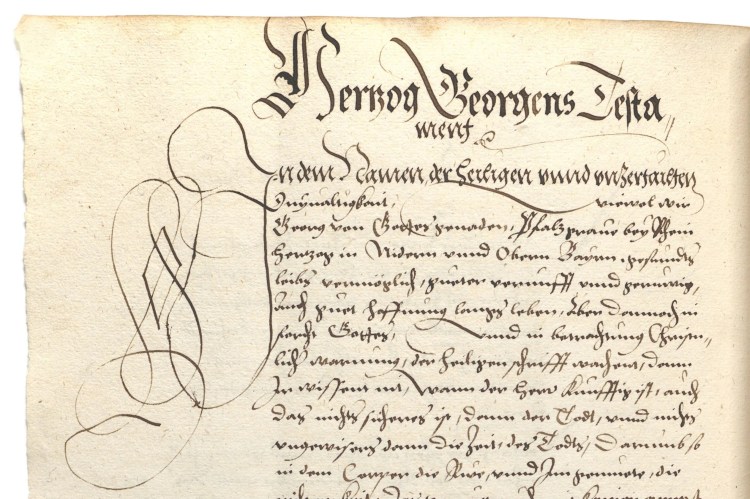 Hertzog Georgens Testa„
ment
In dem Namen, der heiligen vnnd vnzertailten
Driualtigkait, wiewol wir
Georg von Gottes genaden, Pfalzgraue bey Rhein
Hertzog in Nidern vnnd Obern Bayrn, gesundts
leibs vermöglich, gueter vernunfft vnnd geruewig,
auch guet hoffnung langs leben, Aber dannoch in
forcht Gottes, vnnd in betrachtung Christen„
lich warnung, der heiligen schrifft wachent, dann
Ir wissent nit, Wann der herr künfftig ist, auch
das nichts sichers ist, dann den Todt, vnnd nichts
vngewisers dann die Zeit, des Todts, Darumb so
in dem Corper die Rue, vnnd Im gemuete, die